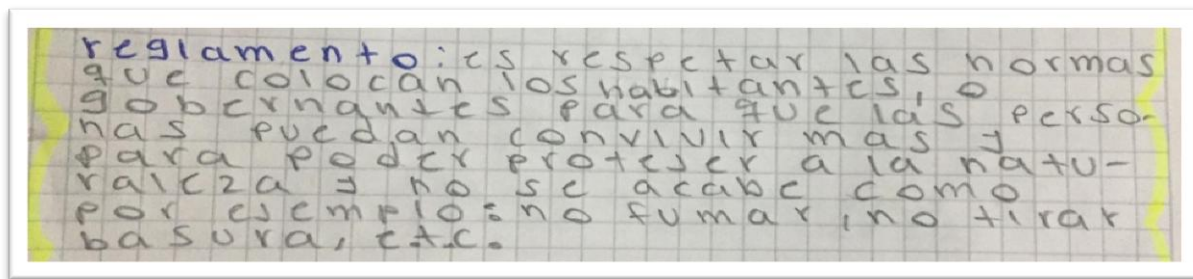 reglamento: es respetar las normas
que colocan los habitantes, o
gobernantes para que las perso-
nas puedan convivir mas y
para poder proteger a la natu-
raleza y no se acabe como
por ejemplo: no fumar, no tirar
basura, etc.